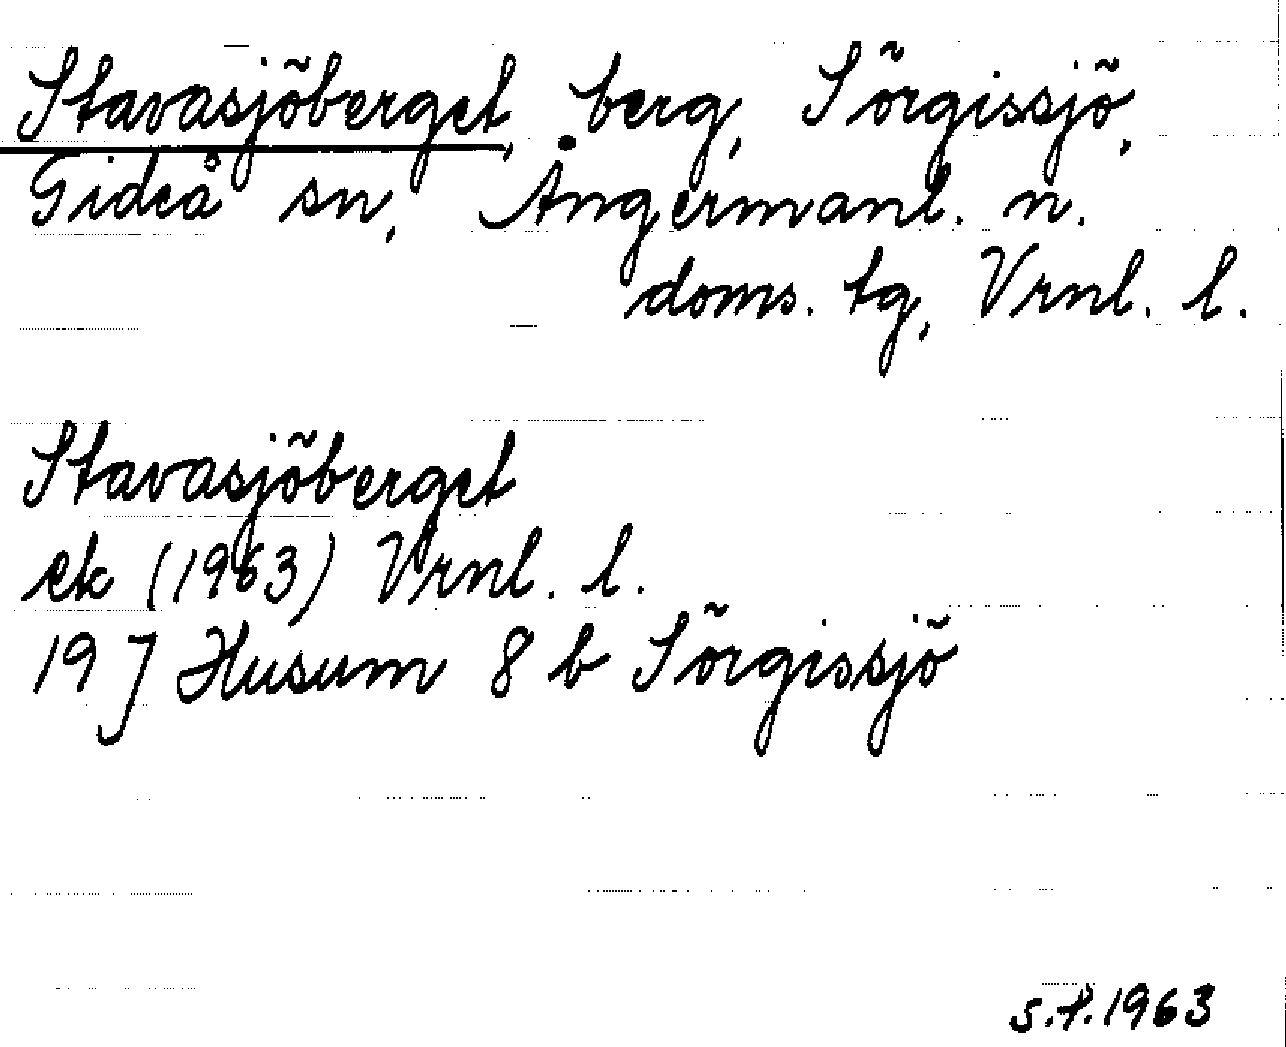 Stavasjöberget, berg, Sörgissjö,
Gideå sn, Ångermanl. n.
doms. tg, Vrnl. l.
Stavasjöberget
ek (1963) Vrnl. l.
19 J Husum 8 b Sörgissjö
s.f. 1963